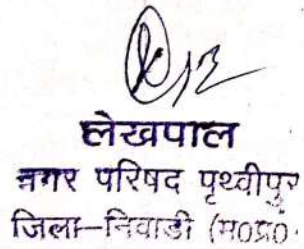 लेखपाल
नगर परिषद पृथ्वीपुर
जिला-निवाडी (म०प्र०